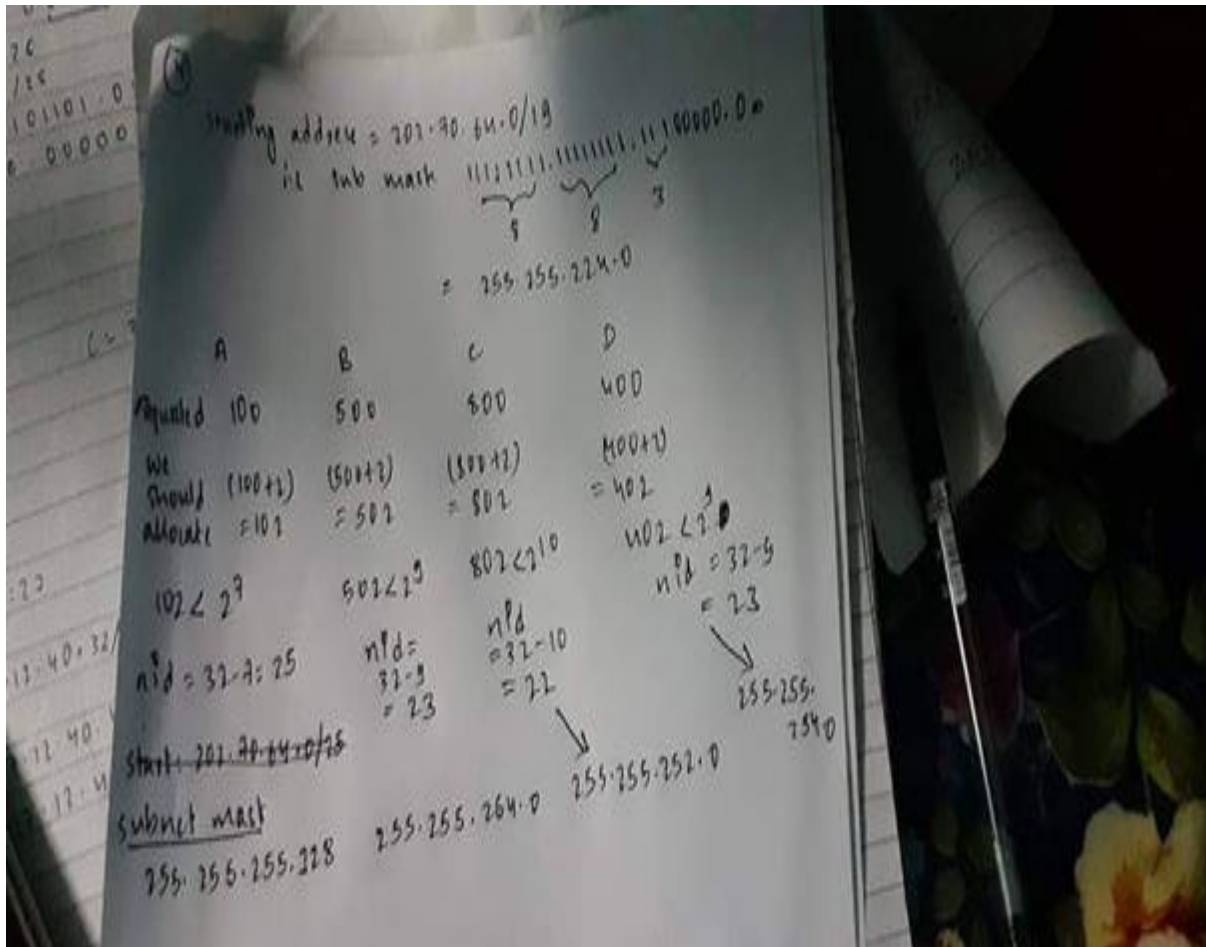 26
/25
101101.0
0.00000
(4)
Starting address = 202.70.64.0/19
i.e sub mask 11111111.11111111.11100000.0
8 8 3
= 255.255.224.0
A B C D
Requested 100 500 800 400
We should allocate (100+2) = 102 (500+2) = 502 (800+2) = 802 (400+2) = 402
102 < 2^7 502 < 2^9 802 < 2^10 402 < 2^9
nid = 32-7 = 25 nid = 32-9 = 23 nid = 32-10 = 22 nid = 32-9 = 23
start: 202.70.64.0/25
subnet mask
255.255.255.128 255.255.254.0 255.255.252.0 255.255.254.0
12.40.32/
12.40.